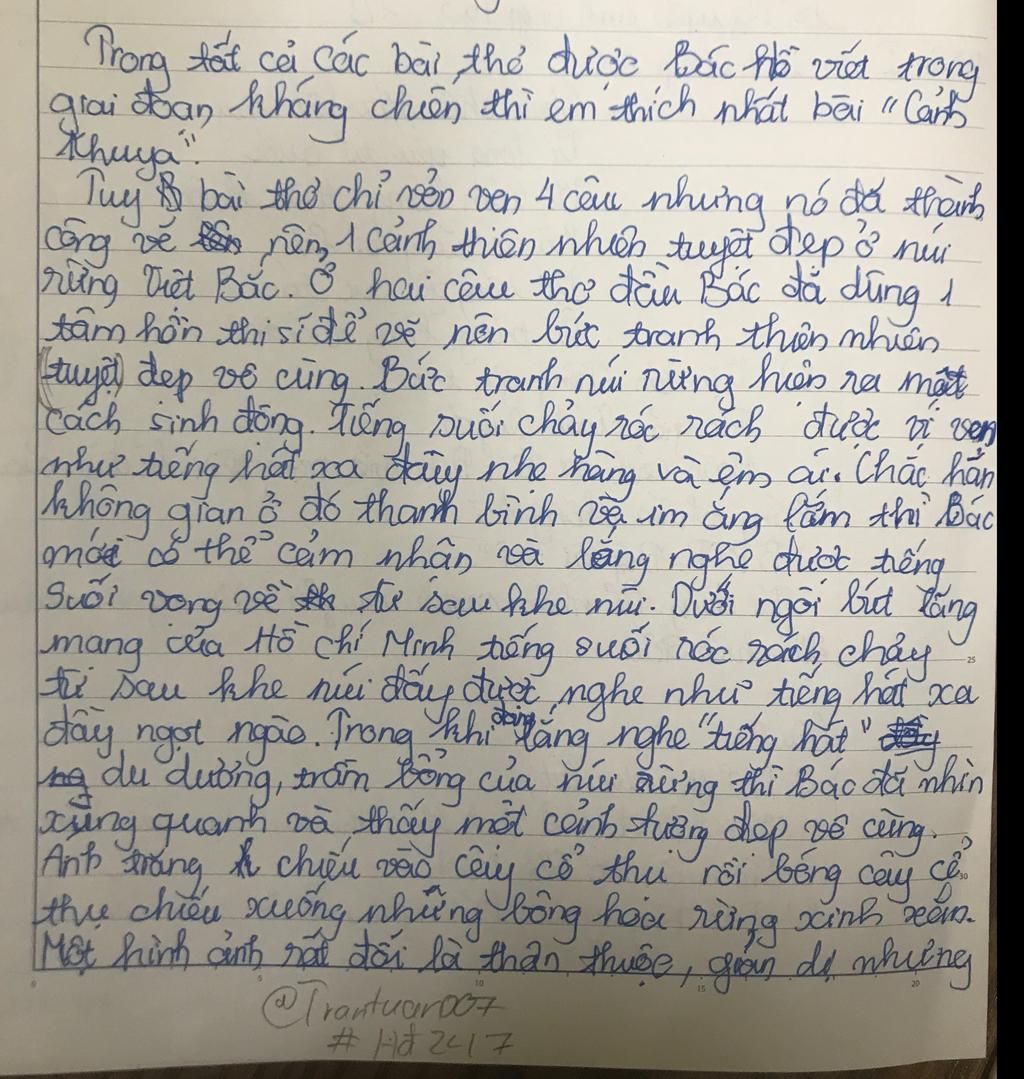 Trong tất cả các bài thơ được Bác Hồ viết trong
giai đoạn kháng chiến thì em thích nhất bài "Cảnh
Khuya".
Tuy bài thơ chỉ vẻn vẹn 4 câu nhưng nó đã thành
công vẽ nên 1 cảnh thiên nhiên tuyệt đẹp ở núi
rừng Việt Bắc. Ở hai câu thơ đầu Bác đã dùng 1
tâm hồn thi sĩ để vẽ nên bức tranh thiên nhiên
(tuyệt) đẹp vô cùng. Bức tranh núi rừng hiện ra một
cách sinh động. Tiếng suối chảy róc rách được ví von
như tiếng hát xa đầy nhẹ nhàng và êm ái. Chắc hẳn
không gian ở đó thanh bình và im ắng lắm thì Bác
mới có thể cảm nhận và lắng nghe được tiếng
suối vọng về từ sau khe núi. Dưới ngòi bút lãng
mạng của Hồ Chí Minh tiếng suối róc rách chảy
từ sau khe núi đấy được nghe như tiếng hát xa
đầy ngọt ngào. Trong khi đang lắng nghe "tiếng hát"
du dương, trầm bổng của núi rừng thì Bác đã nhìn
xung quanh và thấy một cảnh tượng đẹp vô cùng.
Ánh trăng chiếu vào cây cổ thụ rồi bóng cây cổ
thụ chiếu xuống những bông hoa rừng xinh xắn.
Một hình ảnh rất đỗi là thân thuộc, giản dị nhưng
@Trantuan007
# Hđ 2417